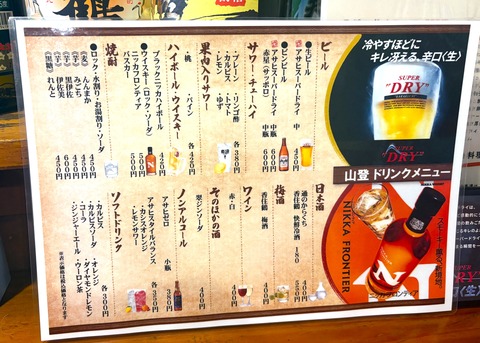 冷やすほどに
キレ冴える、辛口〈生〉
SUPER
"DRY"
SUPER
"DRY"
山登 ドリンクメニュー
スモーキー
NIKKA FRONTIER
ビール
●生ビール
アサヒスーパードライ 中 450円
●ビンビール
アサヒスーパードライ 中瓶 600円
赤星(サッポロ) 中瓶
サワー・チューハイ
・プレーン ・リンゴ酢
・カルピス ・トマト
・レモン ・ゆず
各380円
果肉入りサワー
・桃 ・パイン
各420円
ハイボール・ウイスキー
ブラックニッカハイボール 420円
●ウイスキー(ロック・ソーダ)
ニッカフロンティア 500円
バスカー 500円
焼酎
●ロック・水割り・お湯割り・ソーダ
《麦》 んまか 450円
《芋》 みごち 450円
《芋》 黒伊佐 450円
《芋》 伊佐美 600円
《黒糖》 れんと 450円
日本酒
香住鶴 快鮮冷酒 180
梅酒
香住鶴 梅酒 400円
ワイン
赤・白 400円
そのほかの酒
翠ジンソーダ 400円
ノンアルコール
アサヒゼロ 小瓶 380円
アサヒスタイルバランス
・カシスオレンジ
・レモンサワー
各350円
ソフトドリンク
・カルピス ・オレンジ
・カルピスソーダ
・コーラ ・ダイヤモンドレモン
・ジンジャーエール ・ウーロン茶
各300円
※表示価格は税込価格となります